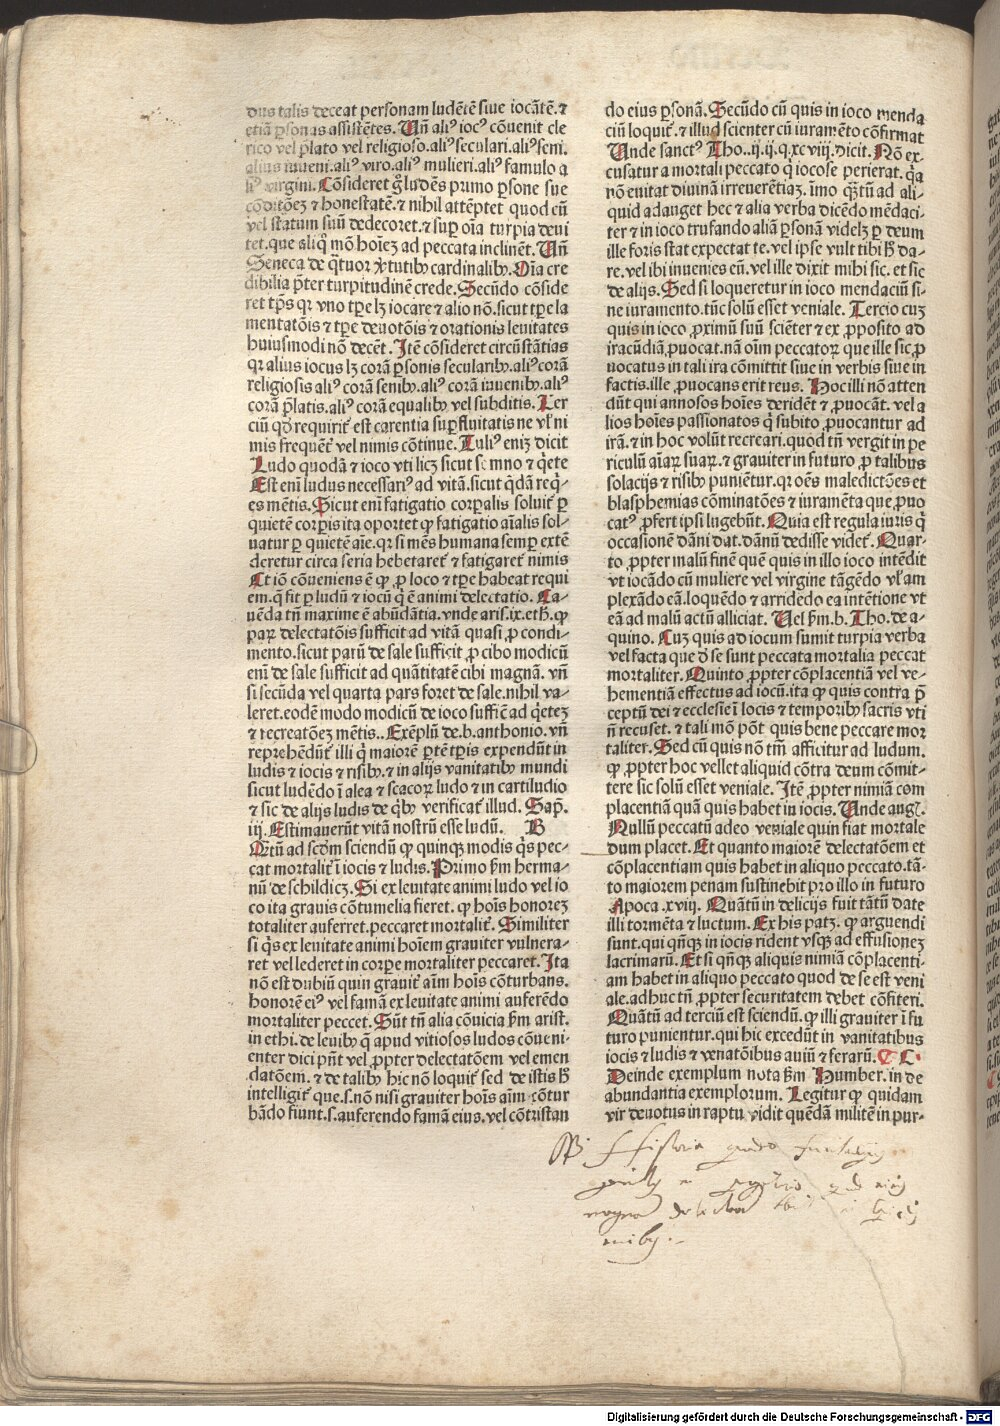 dus talis deceat personam ludētē siue iocātē. ⁊
etiā ꝑsonas assistētes. Un̄ aliꝰ iocꝰ cōuenit cle
rico vel p̄lato vel religioso. aliꝰ seculari. aliꝰ seni.
alius iuueni. aliꝰ viro. aliꝰ mulieri. aliꝰ famulo a
liꝰ virgini. Cōsideret g̊ ludēs primo ꝑsone sue
cōditōeꝫ ⁊ honestatē. ⁊ nihil attēptet quod cū
vel statum suū dedecoret. ⁊ suꝑ oīa turpia deui
tet. que aliq̊ mō hoīeꝫ ad peccata inclinēt. Un̄
Seneca de q̄tuor v̓tutibꝰ cardinalibꝰ. Oīa cre
dibilia p̄ter turpitudinē crede. Secūdo cōside
ret tp̄s qꝛ vno tꝑe lꝫ iocare ⁊ alio nō. sicut tꝑe la
mentatōis ⁊ tꝑe deuotōis ⁊ orationis leuitates
huiusmodi nō decēt. Itē cōsideret circūstātias
qꝛ alius iocus lꝫ corā ꝑsonis secularibꝰ. aliꝰ corā
religiosis aliꝰ corā senibꝰ. aliꝰ corā iuuenibꝰ. aliꝰ
corā p̄latis. aliꝰ corā equalibꝰ vel subditis. Ter
ciū qd̓ requiriť est carentia suꝑfluitatis ne vl̓ ni
mis frequēť vel nimis cōtinue. Tuliꝰ eniꝫ dicit
Ludo quodā ⁊ ioco vti licꝫ sicut somno ⁊ q̓ete
Est enī ludus necessariꝰ ad vitā. sicut q̄dā req̓
es mētis. Sicut enī fatigatio corꝑalis soluiť ꝑ
quietē corꝑis ita oportet ꝙ fatigatio aīalis sol-
uatur ꝑ quietē aīe. qꝛ si mēs humana semꝑ extē
deretur circa seria hebetareť ⁊ fatigareť nimis
Et iō cōueniens ē ꝙ ꝓ loco ⁊ tꝑe habeat requi
em. q̄ fit ꝑ ludū ⁊ iocū q̓ ē animi delectatio. Ca-
uēda tn̄ maxime ē abūdātia. vnde aris. ix. eth̓. ꝙ
paꝝ delectatōis sufficit ad vitā quasi ꝓ condi-
mento. sicut parū de sale sufficit ꝓ cibo modicū
enī de sale sufficit ad quātitatē cibi magnā. vn̄
si secūda vel quarta pars foret de sale. nihil va-
leret. eodē modo modicū de ioco suffi ē ad q̓eteꝫ
⁊ recreatōeꝫ mētis.. Exēplū de. b. anthonio. vn̄
reprehēdūť illi q̓ maiorē ꝑtē tꝑis expendūt in
ludis ⁊ iocis ⁊ risibꝰ. ⁊ in alijs vanitatibꝰ mundi
sicut ludēdo ī alea ⁊ scacoꝝ ludo ⁊ in cartiludio
⁊ sic de alijs ludis de q̓bꝰ verificať illud. Sap̄.
iij. Estimauerūt vitā nostrū esse ludū. B
Q̄tū ad scd̓m sciendū ꝙ quinqꝫ modis q̓s pec-
cat mortaliť ī iocis ⁊ ludis. Primo ẜm herma-
nū de schildicꝫ. Si ex leuitate animi ludo vel io
co ita grauis cōtumelia fieret. ꝙ hoīs honoreꝫ
totaliter auferret. peccaret mortaliť. Similiter
si q̓s ex leuitate animi hoīem grauiter vulnera-
ret vel lederet in corꝑe mortaliter peccaret. Ita
nō est dubiū quin grauiť aīm hoīs cōturbans.
honorē eiꝰ vel famā ex leuitate animi auferēdo
mortaliter peccet. Sūt tn̄ alia cōuicia ẜm arist.
in ethi. de leuibꝰ q̄ apud vitiosos ludos cōueni-
enter dici pn̄t vel ꝓpter delectatōem vel emen
datōem. ⁊ de talibꝰ hic nō loquiť sed de istis h̓
intelligiť que. s. nō nisi grauiter hoīs aīm cōtur
bādo fiunt. s. auferendo famā eius. vel cōtristan
do eius ꝑsonā. Secūdo cū quis in ioco menda
ciū loquiť. ⁊ illud scienter cū iuramēto cōfirmat
Unde sanctꝰ Tho. ij. ij. q. xcviij. dicit. Nō ex-
cusatur a mortali peccato q̓ iocose perierat. q̓a
nō euitat diuinā irreuerētiaꝫ. imo q̄ꝫtū ad ali-
quid adauget hec ⁊ alia verba dicēdo mēdaci-
ter ⁊ in ioco trufando aliā ꝑsonā videlꝫ ꝑ deum
ille foris stat expectat te. vel ipse vult tibi h̓ da-
re. vel ibi inuenies cū. vel ille dixit mihi sic. et sic
de alijs. Sed si loqueretur in ioco mendaciū si-
ne iuramento. tūc solū esset veniale. Tercio cuꝫ
quis in ioco ꝓximū suū sciēter ⁊ ex ꝓposito ad
iracūdiā ꝓuocat. nā oīm peccatoꝝ que ille sic ꝓ
uocatus in tali ira cōmittit siue in verbis siue in
factis. ille ꝓuocans erit reus. Hoc illi nō atten
dūt qui annosos hoīes deridēt ⁊ ꝓuocāt. vel a
lios hoīes passionatos q̓ subito ꝓuocantur ad
irā. ⁊ in hoc volūt recreari. quod tn̄ vergit in pe
riculū aīaꝝ suaꝝ. ⁊ grauiter in futuro ꝓ talibus
solacijs ⁊ risibꝰ punieťur. qꝛ oēs maledictōes et
blasphemias cōminatōes ⁊ iuramēta que ꝓuo
catꝰ ꝓfert ipsi lugebūt. Quia est regula iuris q̓
occasionē dāni dat. dānū dedisse videť. Quar-
to ꝓpter malū finē quē quis in illo ioco intēdit
vt iocādo cū muliere vel virgine tāgēdo vl̓ am
plexādo eā. loquēdo ⁊ arridedo ea intētione vt
eā ad malū actū alliciat. Uel ẜm. b. Tho. de a-
quino. Cuꝫ quis ad iocum sumit turpia verba
vel facta que d̓ se sunt peccata mortalia peccat
mortaliter. Quinto ꝓpter cōplacentiā vel ve-
hementiā effectus ad iocū. ita ꝙ quis contra p̄
ceptū dei ⁊ ecclesie ī locis ⁊ temporibꝰ sacris vti
n̄ recuset. ⁊ tali mō pōt quis bene peccare mor
taliter. Sed cū quis nō tm̄ afficitur ad ludum.
ꝙ ꝓpter hoc vellet aliquid cōtra deum cōmit-
tere sic solū esset veniale. Itē ꝓpter nimiā com
placentiā quā quis habet in iocis. Unde augꝰ.
Nullū peccatū adeo veniale quin fiat mortale
dum placet. Et quanto maiorē delectatōem et
cōplacentiam quis habet in aliquo peccato. tā-
to maiorem penam sustinebit pro illo in futuro
Apoca. xviij. Quātū in delicijs fuit tātū date
illi tormēta ⁊ luctum. Ex his patꝫ. ꝙ arguendi
sunt. qui qn̄qꝫ in iocis rident vsqꝫ ad effusioneꝫ
lacrimarū. Et si qn̄qꝫ aliquis nimiā cōplacenti-
am habet in aliquo peccato quod de se est veni
ale. adhuc tn̄ ꝓpter securitatem debet cōfiteri.
Quātū ad terciū est sciendū. ꝙ illi grauiter ī fu
turo punientur. qui hic excedūt in vanitatibus
iocis ⁊ ludis ⁊ venatōibus auiū ⁊ ferarū. C.
Deinde exemplum nota ẜm Humber. in de
abundantia exemplorum. Legitur ꝙ quidam
vir deuotus in raptu vidit quēdā militē in pur-
Historia
Digitalisierung gefördert durch die Deutsche Forschungsgemeinschaft - DFG